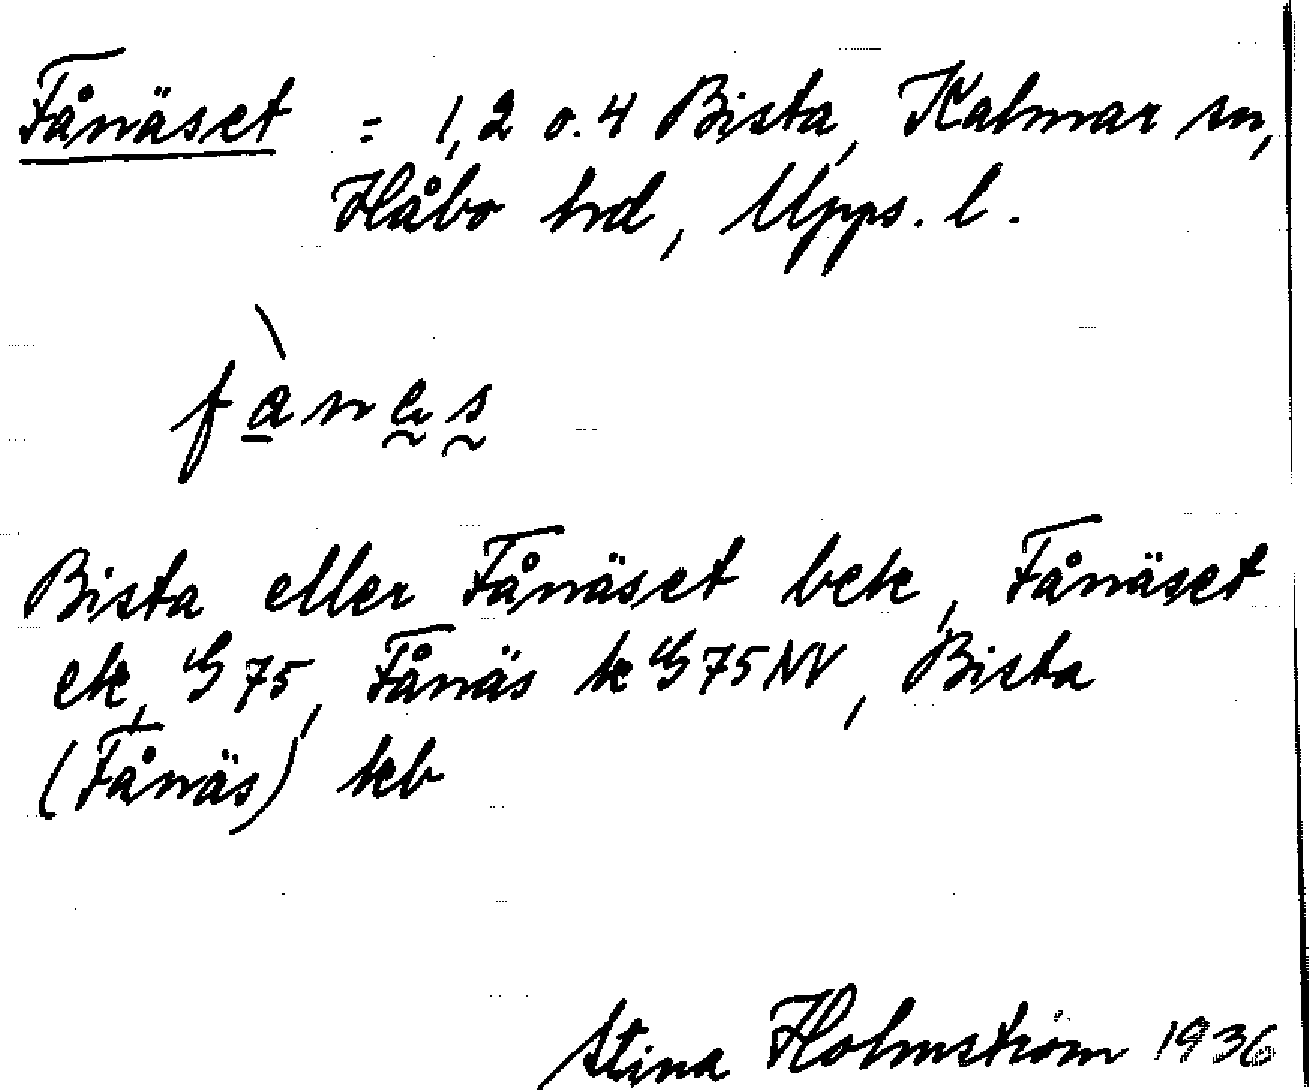 Fånäset = 1, 2 o. 4 Bista, Kalmar sn,
Håbo hd, Upps. l.
Bista eller Fånäset bek, Fånäset
ek, G 75, Fånäs k G 75 NV, Bista
(Fånäs) kb
Stina Holmström 1936